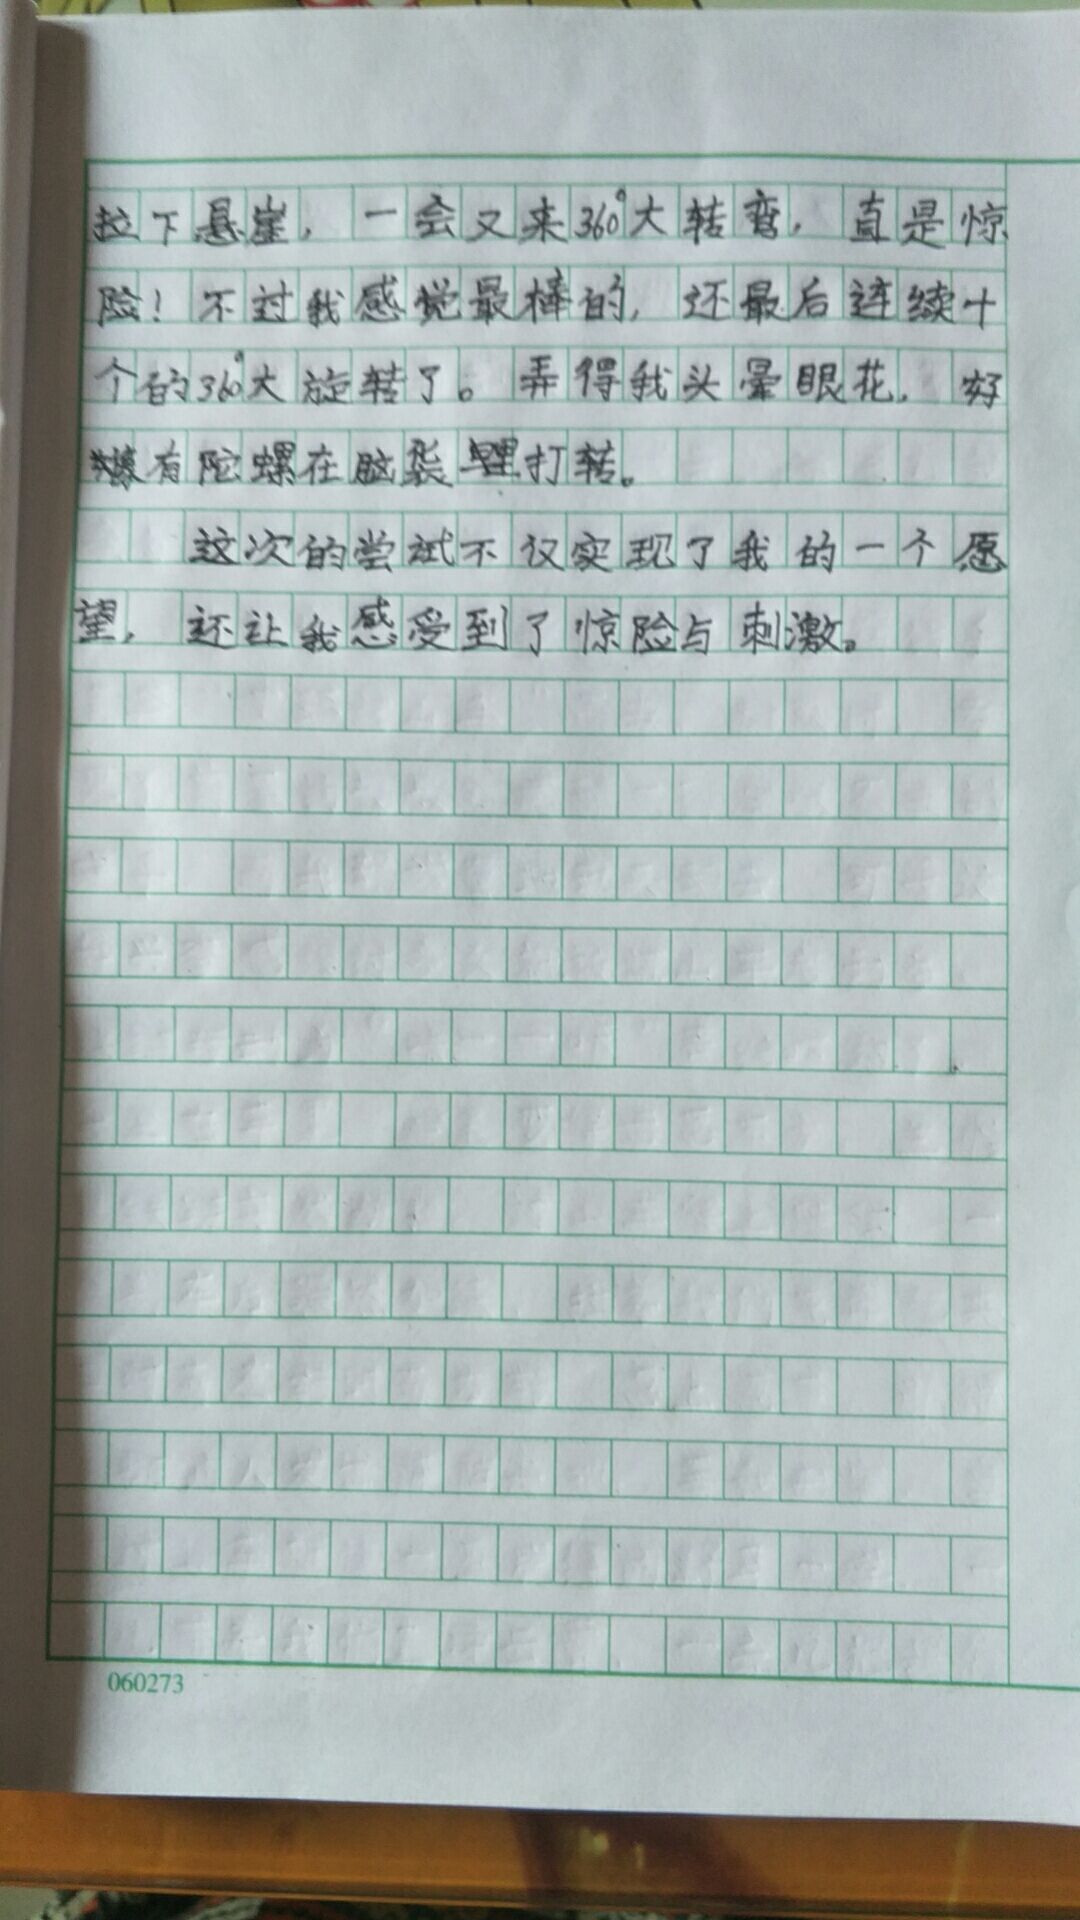 拉下悬崖，一会又来360°大转弯，直是惊
险！不过我感觉最棒的，还最后连续十
个的360°大旋转了。弄得我头晕眼花，好
像有陀螺在脑袋里打转。
这次的尝试不仅实现了我的一个愿
望，还让我感受到了惊险与刺激。
060273